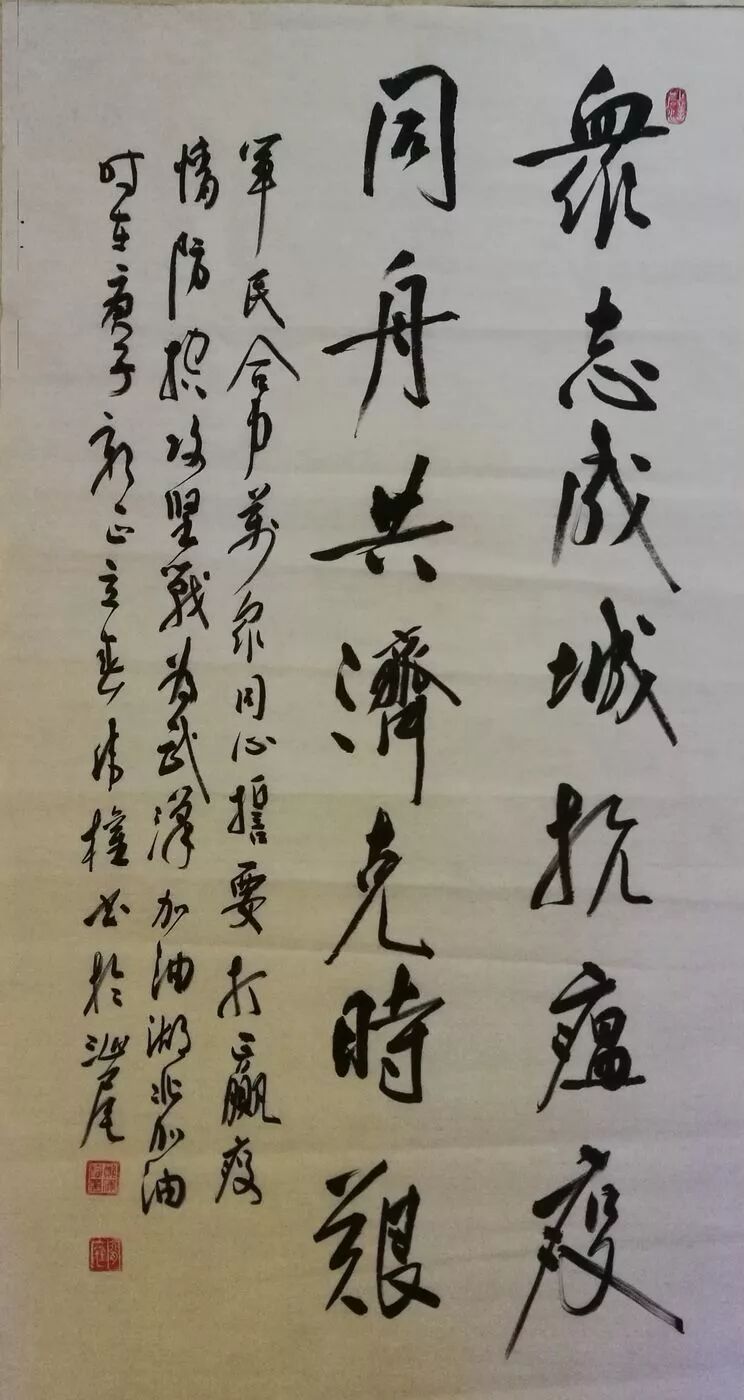 衆志成城抗瘟疫
同舟共濟克時艱
軍民合力萬众同心誓要打贏疫
情防控攻堅戰为武漢加油湖北加油
时在庚子新正立春 權书於汕尾